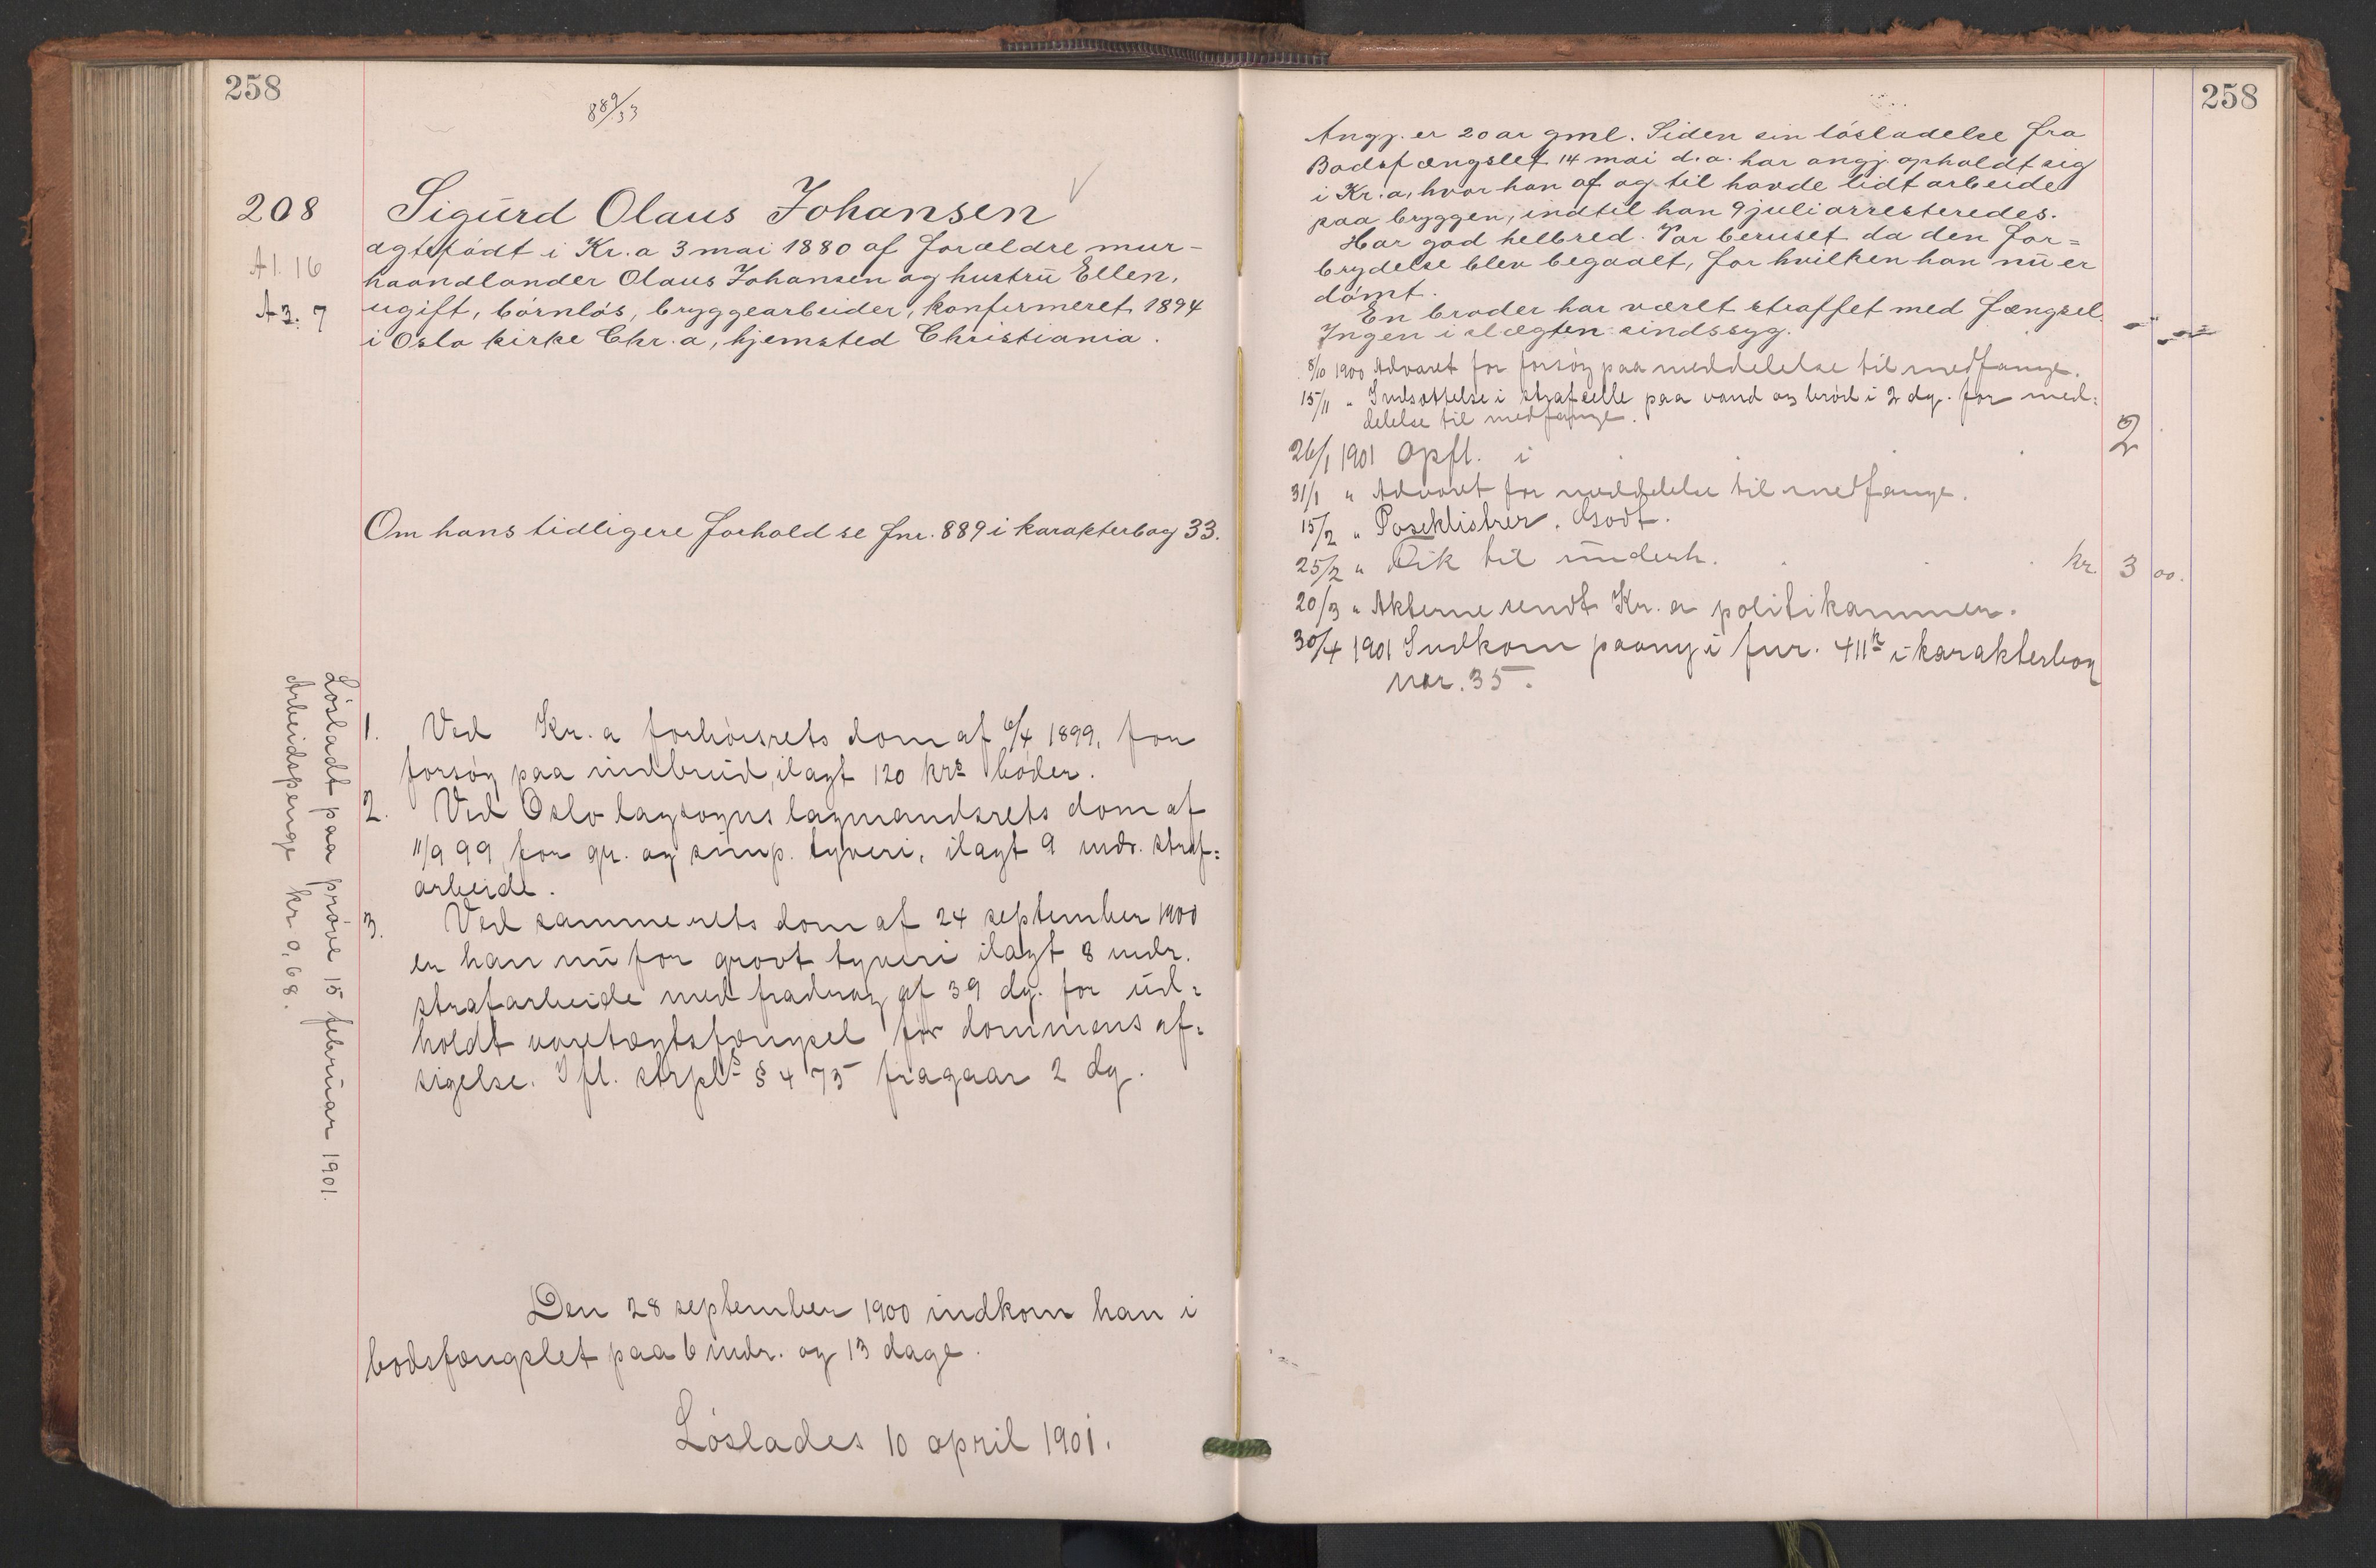 258
889/33
208
Sigurd Olaus Johansen
A1. 16
A3. 7
ægtefødt i Kr.a 3 mai 1880 af forældre mur-
haandlanger Olaus Johansen og hustru Ellen,
ugift, børnløs, bryggearbeider, konfirmeret 1894
i Oslo kirke Chr.a, hjemsted Christiania.
Om hans tidligere forhold se fnr. 889 i karakterbog 33.
1. Ved Kr.a forhørsrets dom af 6/4 1899, for
forsøg paa indbrud, ilagt 120 krs bøder.
2. Ved Oslo lagsogns lagmandsrets dom af
11/9 99 for gr. og simp. tyveri, ilagt 9 mdr. straf=
arbeide.
3. Ved samme rets dom af 24 september 1900
er han nu for grovt tyveri ilagt 8 mdr.
strafarbeide med fradrag af 39 dg. for ud=
holdt varetægtsfængsel før dommens af=
sigelse. Ifl. strpl.s § 475 fragaar 2 dg.
Løsladt paa prøve 15 februar 1901.
Arbeidspenge kr 9,68.
Den 28 september 1900 indkom han i
bodsfængslet paa 6 mdr. og 13 dage.
Løslades 10 april 1901.
258
Angj. er 20 aar gml. Siden sin løsladelse fra
Bodsfængslet 14 mai d.a. har angj. opholdt sig
i Kr.a, hvor han af og til havde lidt arbeide
paa bryggen, indtil han 9 juli arresteredes.
Har god helbred. Var beruset da den for=
brydelse blev begaaet, for hvilken han nu er
dømt.
En broder har været straffet med fængsel.
Ingen i slægten sindssyg.
8/10 1900 Advaret for forsøg paa meddelelse til medfange.
15/11 " Indsættelse i strafcelle paa vand og brød i 2 dg. for med=
delelse til medfange. 2
26/1 1901 Opfl. i
31/1 " Advaret for meddelelse til medfange.
15/2 " Poseklistrer. Godt.
25/2 " Fik til underh. kr. 3 00.
20/3 " Akterne sendt Kr.a politikammer.
30/4 1901 Indkom paany i fnr. 411 i karakterbog
nr. 35.